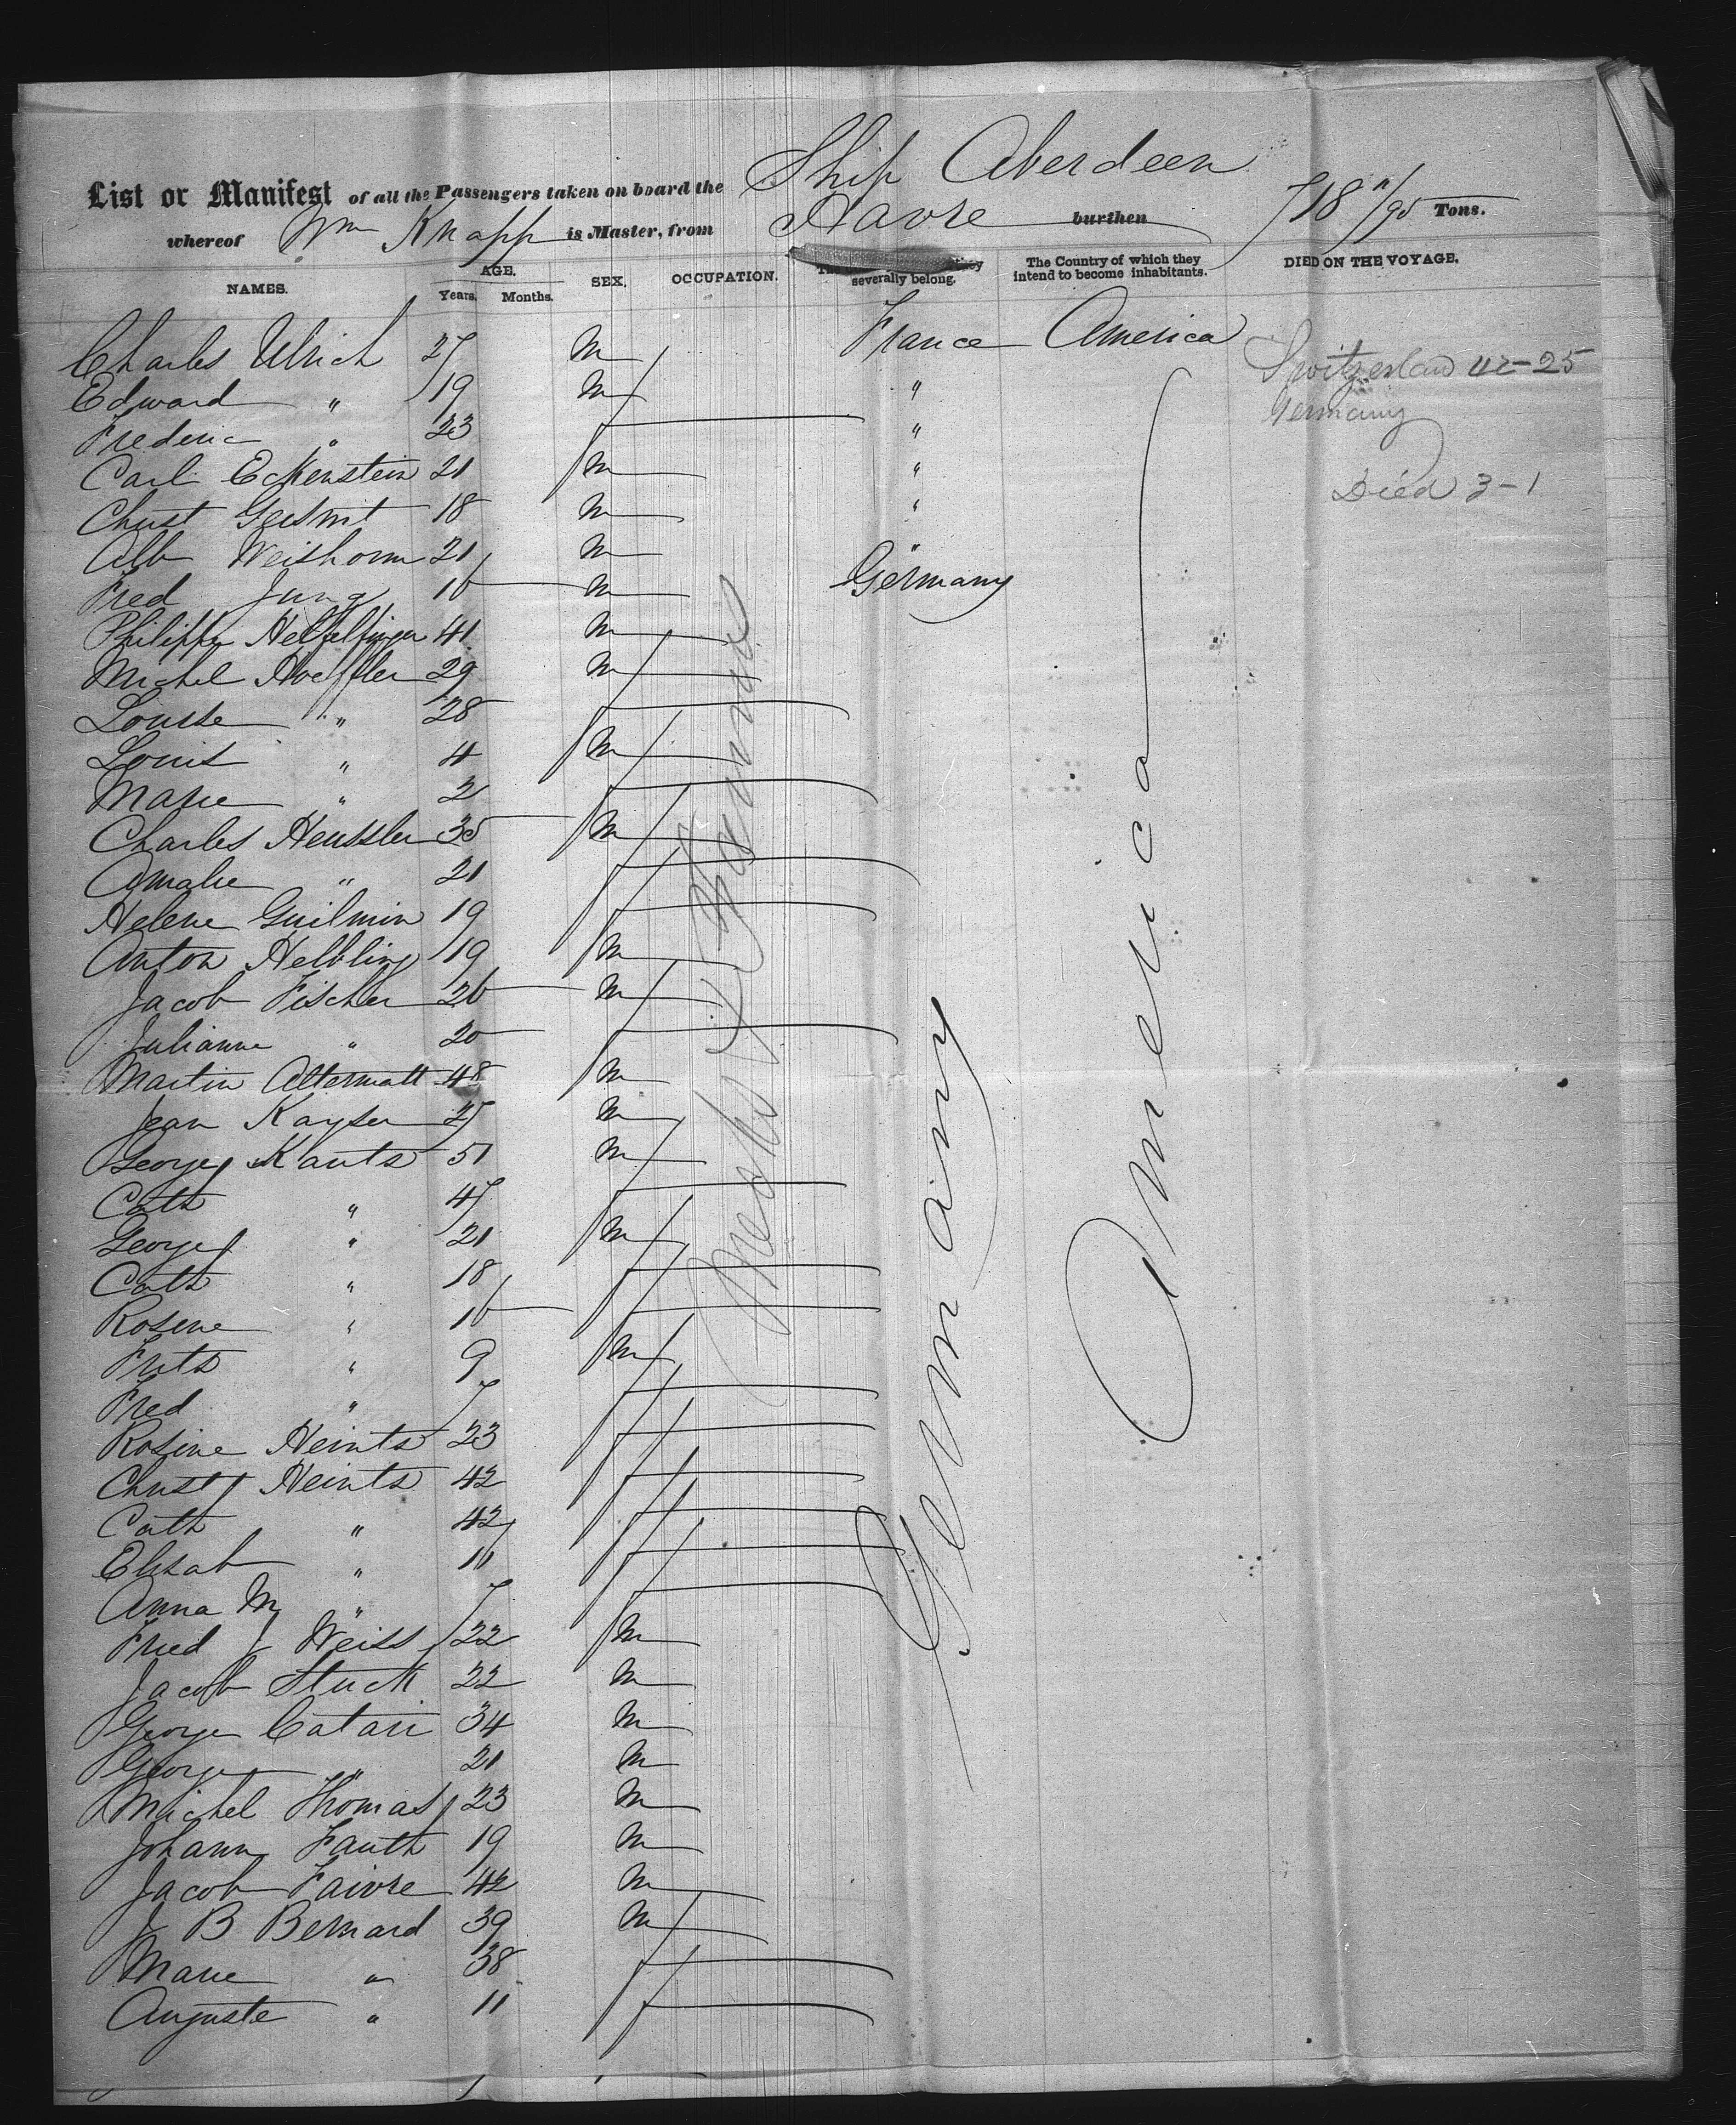 Ship Aberdeen
List or Manifest of all the Passengers taken on board the
whereof Wm Knapp is Master, from Havre burthen 718 11/95 Tons.
NAMES. AGE. Years. Months. SEX. OCCUPATION. severally belong. The Country of which they intend to become inhabitants. DIED ON THE VOYAGE.
Charles Ulrich 27 m France America
Switzerland 42-25
Edward " 19 m "
Germany
Frederic " 23 f "
Carl Eckenstein 21 m "
Died 3-1
Christ 18 m "
Alb Weishorn 21 m "
Fred Jung 16 m Germany
Philippe 41 m
Michel Hoeffler 29 m
Louise " 28 f
Louis " 4 m
Marie " 2 f
Charles Heussler 35 m
Amalie " 21 f
Helene Guilmin 19 f
Anton Helbling 19 m
Jacob Fischer 26 m
Julianne " 20 f
Martin Altermatt 48 m
Jean Kayser 27 m
George Kauts 51 m
Cath " 47 f
George " 21 m
Cath " 18 f
Rosine " 16 f
Frits " 9 m
Fred " 7 f
Rosine Heints 23 f
Christ Heints 42 f
Cath " 42 f
Elisab " 11 f
Anna M " 7 f
Fried J Weiss 22 m
Jacob Stuck 22 m
George Catari 34 m
George " 21 m
Michel Thomas 23 m
Johann Fauth 19 m
Jacob Faivre 42 m
J B Bernard 39 m
Marie " 38 f
Auguste " 11 f
Germany
America